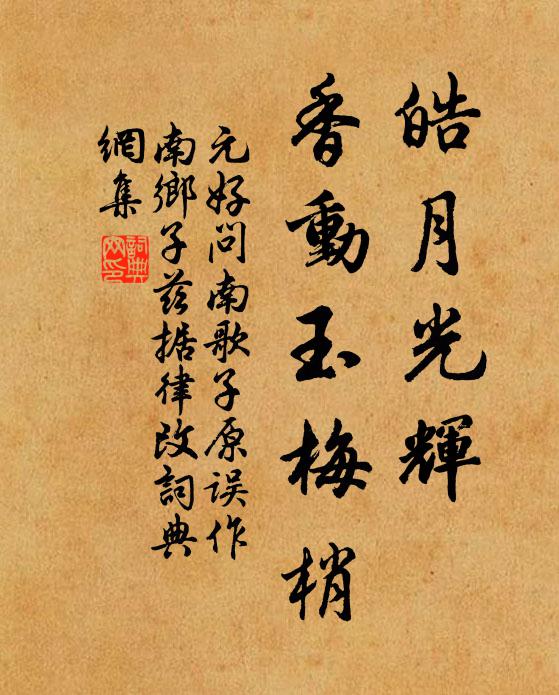 皓月光輝
香動玉梅梢
元好问南歌子原误作
南鄉子兹据律改詞典
網集
詞典
网印